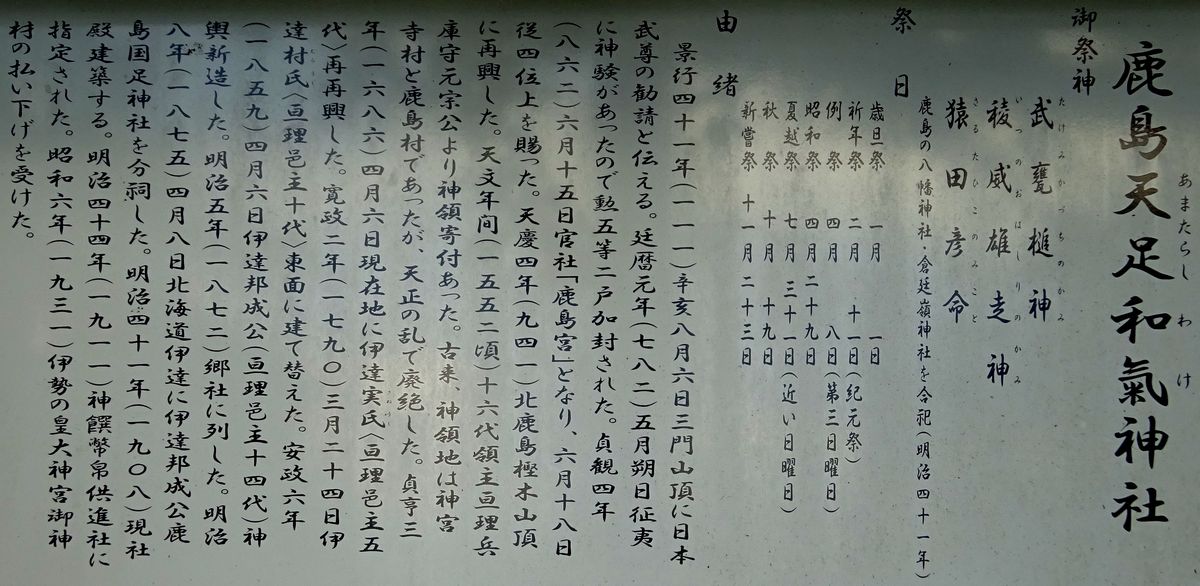 鹿島天足和氣神社
あまたらし わけ
御祭神
武甕槌神
たけみかづちのかみ
稜威雄走神
いつのおはしりのかみ
猿田彦命
さるたひこのみこと
鹿島の八幡神社・倉廷嶺神社を合祀(明治四十一年)
祭日
歳旦祭 一月 一日
祈年祭 二月 十一日(紀元祭)
例祭 四月 八日(第三日曜日)
昭和祭 四月 二十九日
夏越祭 七月 三十一日(近い日曜日)
秋祭 十月 十九日
新嘗祭 十一月 二十三日
由緒
景行四十一年(一一一)辛亥八月六日三門山頂に日本
武尊の勧請と伝える。廷暦元年(七八二)五月朔日征夷
に神験があったので勲五等二戸加封された。貞観四年
(八六二)六月十五日官社「鹿島宮」となり、六月十八日
従四位上を賜った。天慶四年(九四一)北鹿島樫木山頂
に再興した。天文年間(一五五二頃)十六代領主亘理兵
庫守元宗公より神領寄付あった。古来、神領地は神宮
寺村と鹿島村であったが、天正の乱で廃絶した。貞亨三
年(一六八六)四月六日現在地に伊達実氏〈亘理邑主五
代〉再再興した。寛政二年(一七九〇)三月二十四日伊
達村氏〈亘理邑主十代〉東面に建て替えた。安政六年
(一八五九)四月六日伊達邦成公(亘理邑主十四代)神
輿新造した。明治五年(一八七二)郷社に列した。明治
八年(一八七五)四月八日北海道伊達に伊達邦成公鹿
島国足神社を分祠した。明治四十一年(一九〇八)現社
殿建築する。明治四十四年(一九一一)神饌幣帛供進社に
指定された。昭和六年(一九三一)伊勢の皇大神宮御神
村の払い下げを受けた。